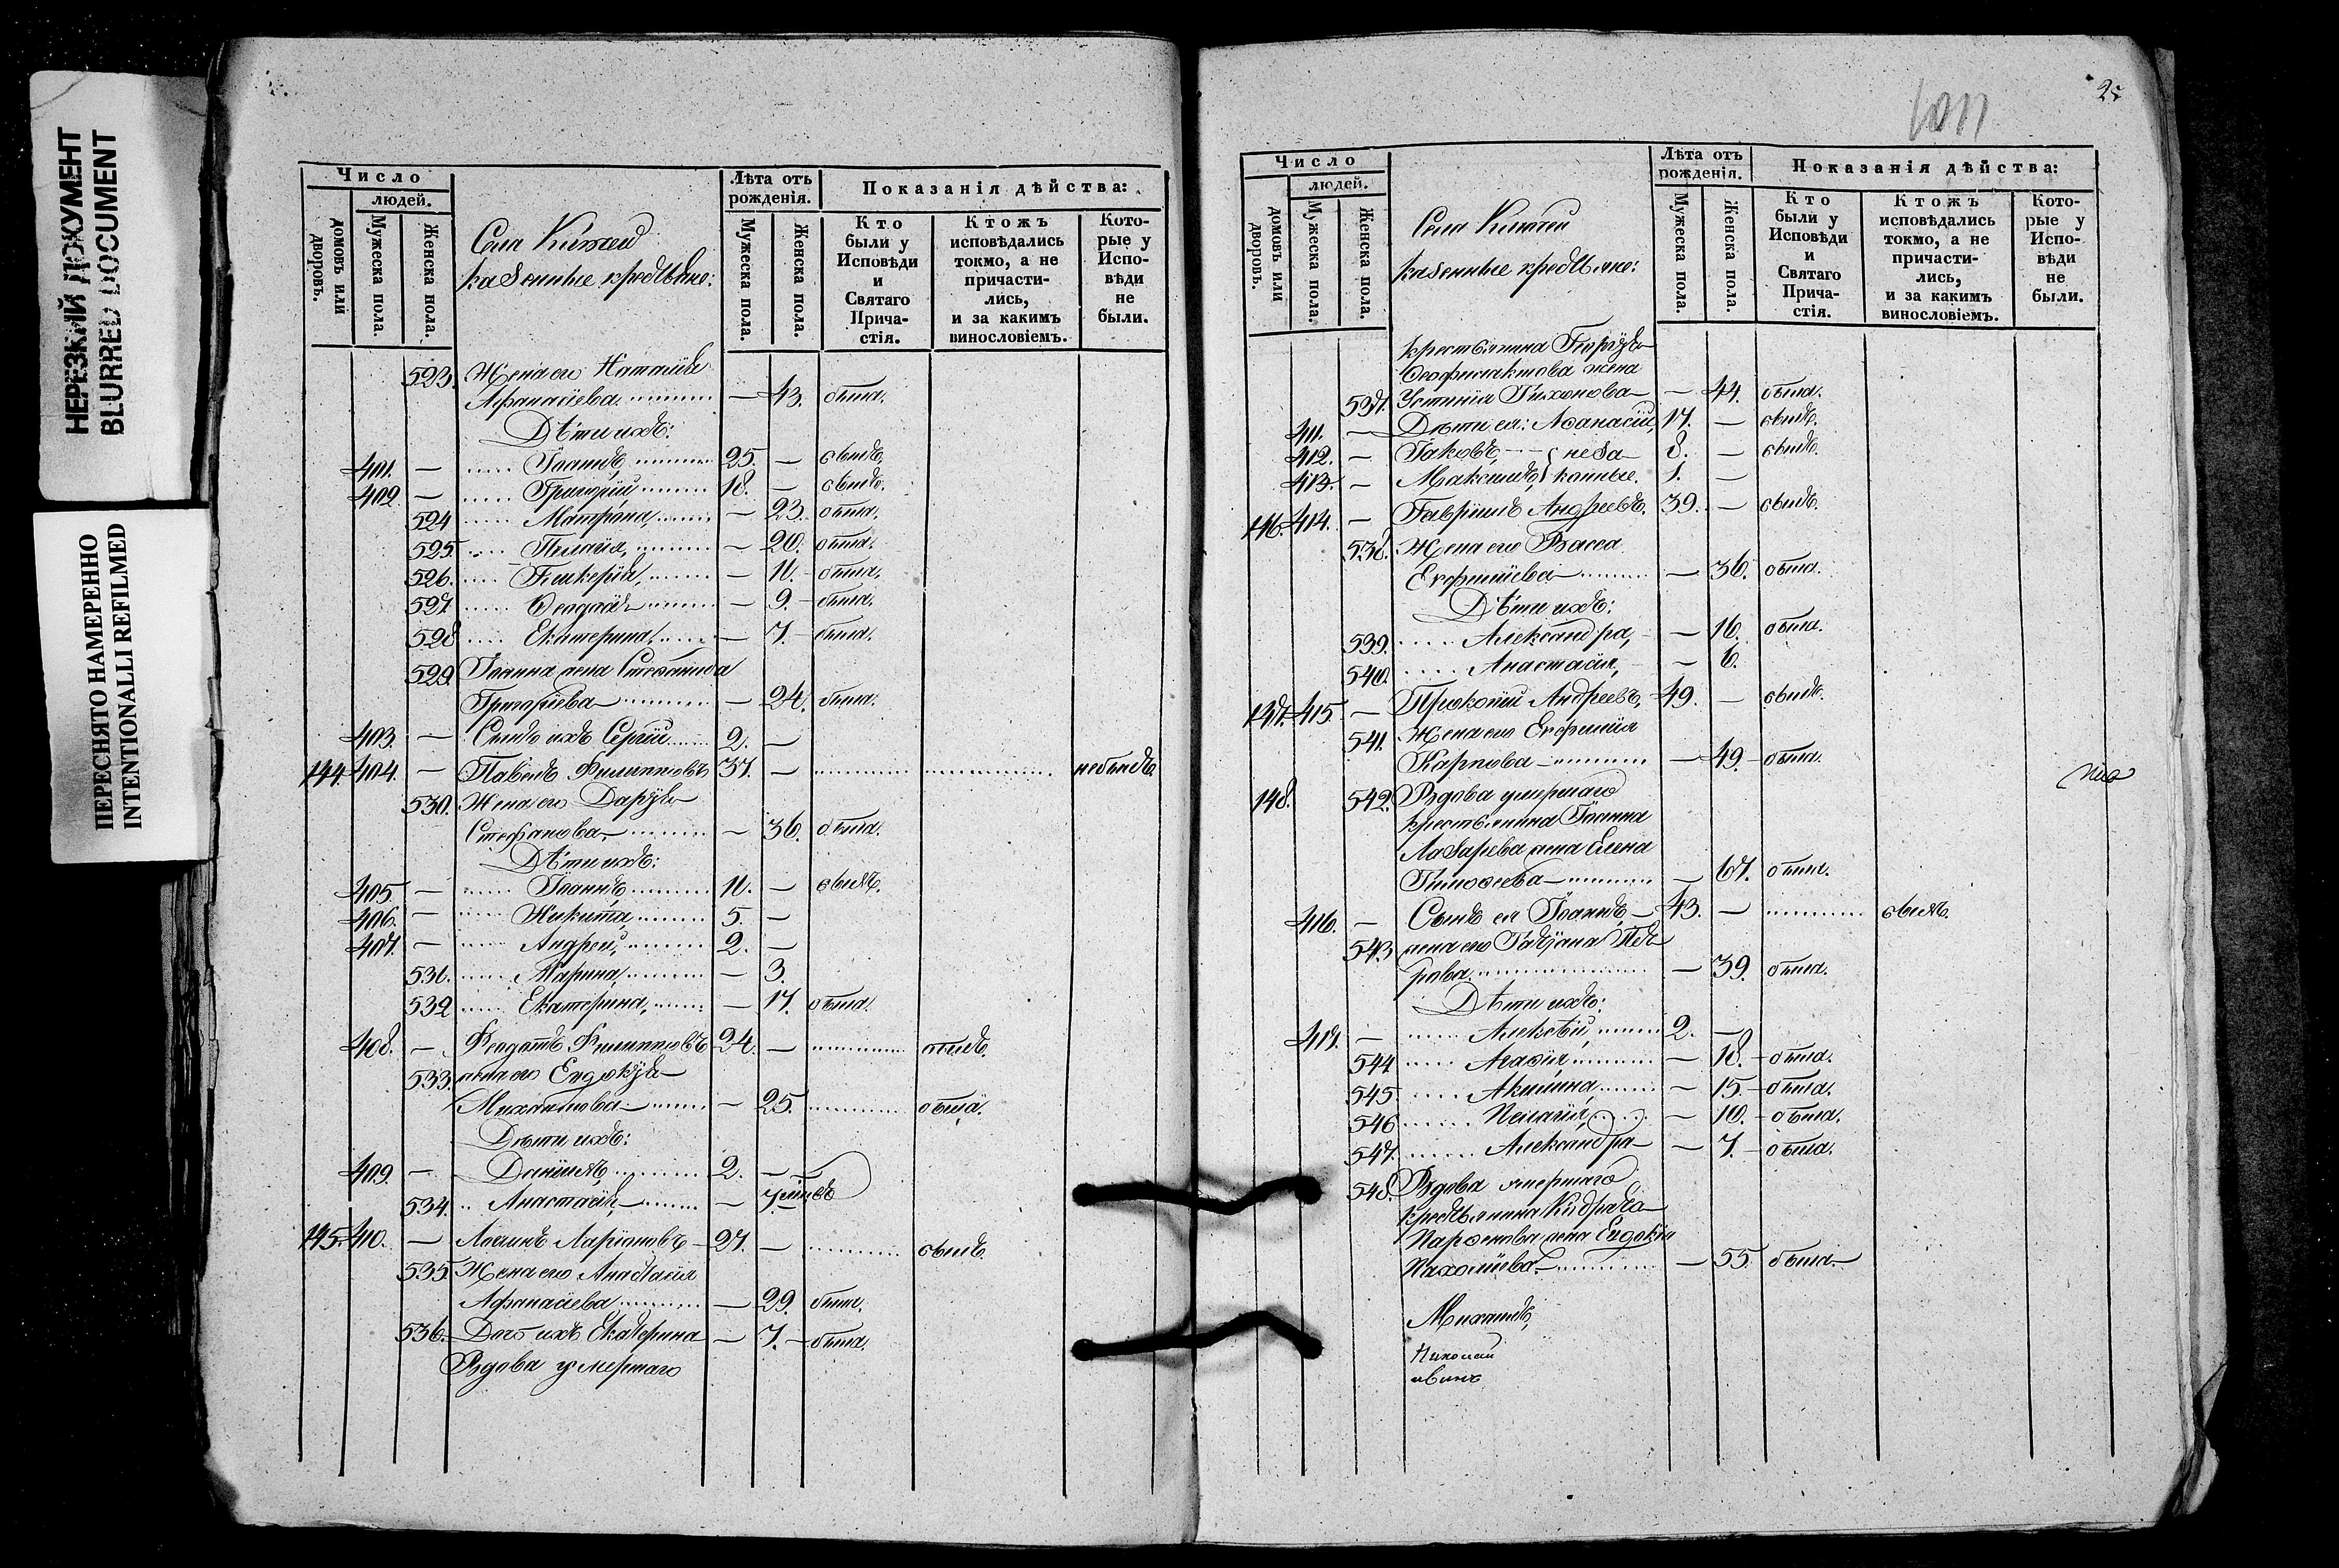 НЕРЕЗКИЙ ДОКУМЕНТ
BLURRED DOCUMENT
ПЕРЕСНЯТО НАМЕРЕННО
INTENTIONALLI REFILMED
Число
людей.
домовъ или дворовъ.
Мужеска пола.
Женска пола.
Села
казенные крестьяне:
Лѣта отъ рожденія.
Мужеска пола.
Женска пола.
Показанія дѣйства:
Кто были у Исповѣди и Святаго Прича- стія.
Ктожъ исповѣдались токмо, а не причасти- лись, и за какимъ винословіемъ.
Кото- рые у Испо- вѣди не были.
523. Жена его Наталія
Афанасіева — 43. была.
Дѣти ихъ:
401. — Іоаннъ, 25. — былъ.
402. — Григорій, 18. — былъ.
524 Матрона, — 23. была.
525. Пелагія, — 20. была.
526. Гликерія, — 11. была.
527. Феодосія — 9. была.
528 Екатерина, — 7. была.
529. Іоанна жена Степанида
Григоріева — 24. была.
403. — Сынъ ихъ Сергій 2. —
144. 404. — Павелъ Филипповъ 37. — не былъ.
530. Жена его Дарія
Стефанова — 36. была.
Дѣти ихъ:
405. — Іоаннъ, 11. — былъ.
406. — Никита, 5. —
407. — Андрей, 2. —
531. Марина, — 3.
532 Екатерина, — 17. была.
408. — Феодотъ Филипповъ 24. — былъ.
533. жена его Евдокія
Михайлова — 25. была.
Дѣти ихъ:
409. — Даніилъ, 2. —
534. Анастасія, — 7 мѣс
145. 410. — Ларіоновъ 27. — былъ.
535. Жена его Анастасія
Афанасіева — 29. была.
536. Дочь ихъ Екатерина — 7. была.
Вдова умершаго
2
Число
людей.
домовъ или дворовъ.
Мужеска пола.
Женска пола.
Села
казенные крестьяне:
Лѣта отъ рожденія.
Мужеска пола.
Женска пола.
Показанія дѣйства:
Кто были у Исповѣди и Святаго Прича- стія.
Ктожъ исповѣдались токмо, а не причасти- лись, и за какимъ винословіемъ.
Кото- рые у Испо- вѣди не были.
крестьянина
Феофилактова жена
537. Устинія Тихонова — 44. была.
411. — Дѣти ея: Аѳанасій, 17. — былъ.
412. — Іаковъ, неза 8. — былъ.
413. — Максимъ, конные. 1. —
146. 414. — Гавріилъ Андреевъ. 39. — былъ.
538. Жена его Васса
Евфиміева — 36. была.
Дѣти ихъ:
539. Александра, — 16. была.
540. Анастасія, — 6.
147. 415. — Прокопій Андреевъ, 49. — былъ.
541. Жена его Евфимія
Карпова — 49. была.
148. 542. Вдова умершаго
крестьянина Іоанна
Лазарева жена Елена
Тимоѳеева — 67. была.
416. — Сынъ ея Іоаннъ, 43. — былъ.
543 жена его Татіана Пет
рова — 39. была.
Дѣти ихъ:
417. — Алексѣй, 2. —
544 Агаѳія — 18. была.
545 Акилина, — 15. была.
546 Пелагія, — 10. была.
547. Александра — 7. была.
548. Вдова умершаго
крестьянина Кодрата
Парѳенова жена Евдокія
Пахоміева. — 55. была
Михаилъ,
Николай